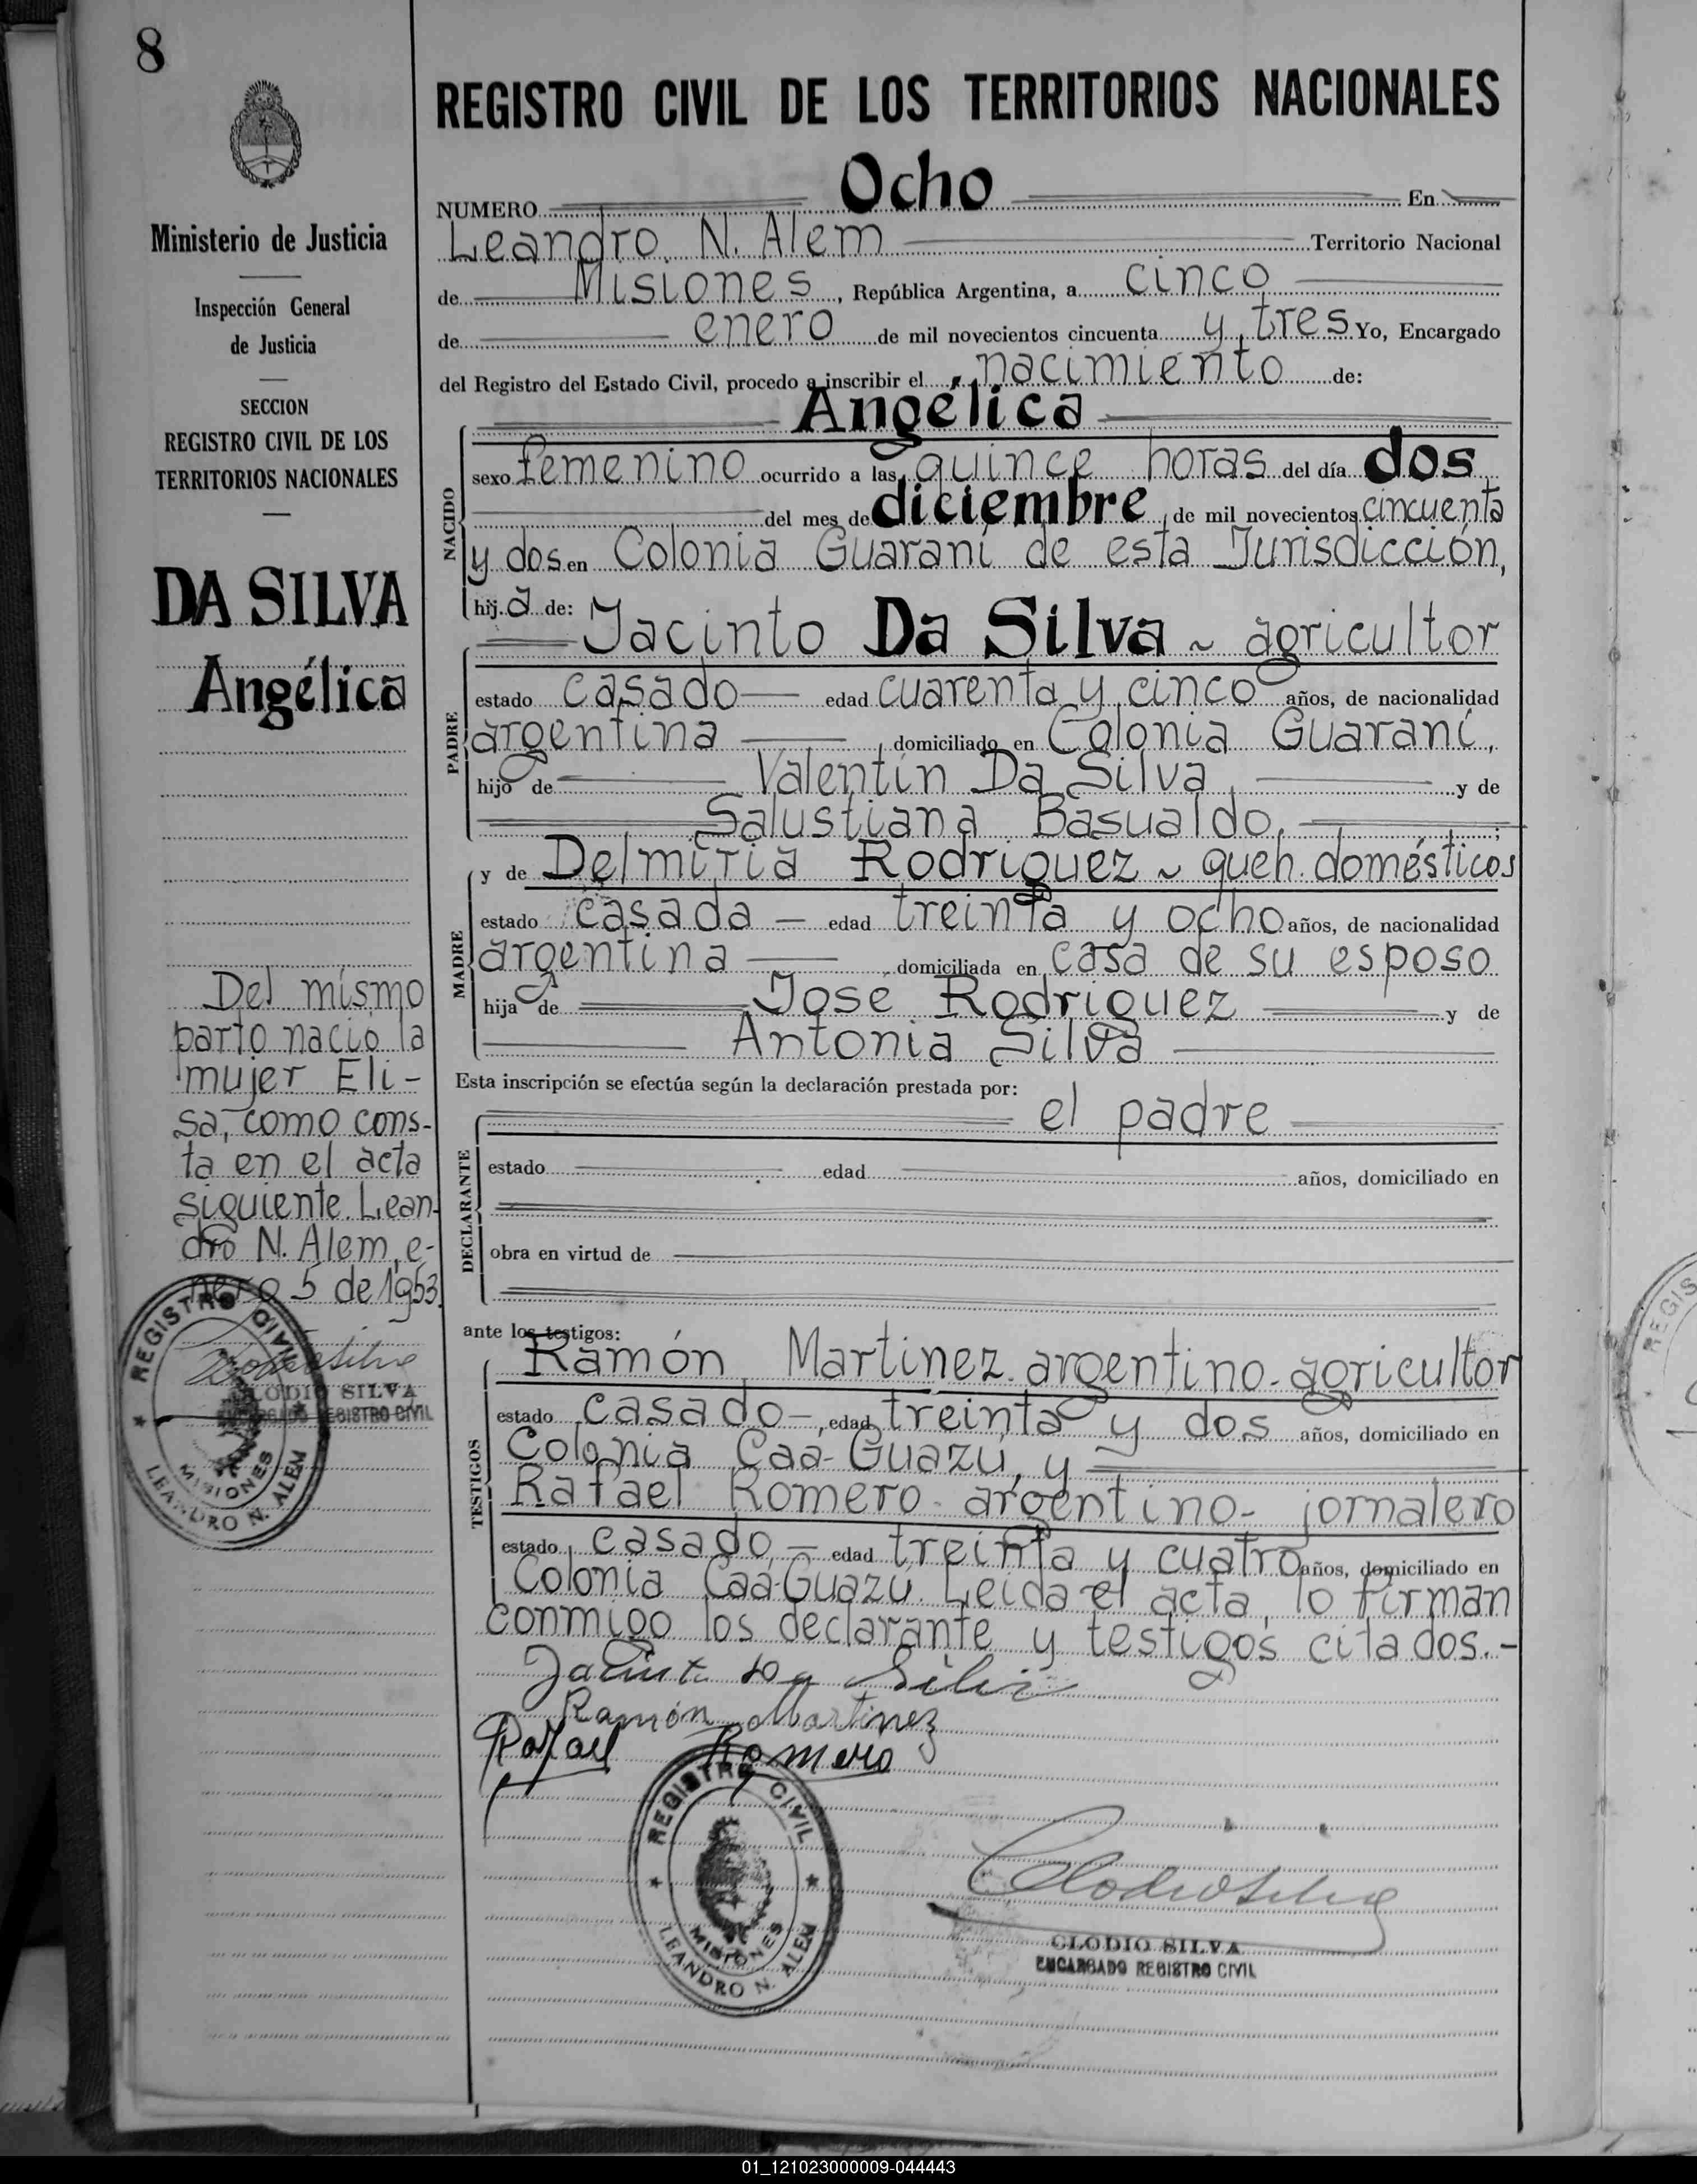 8
Ministerio de Justicia
Inspección General
de Justicia
SECCION
REGISTRO CIVIL DE LOS
TERRITORIOS NACIONALES
DA SILVA
Angélica
Del mismo
parto nació la
mujer Eli-
sa, como cons-
ta en el acta
siguiente. Lean-
dro N. Alem, e-
nero 5 de 1953.
REGISTRO CIVIL
MISIONES
LEANDRO N. ALEM
CLODIO SILVA
ENCARGADO REGISTRO CIVIL
REGISTRO CIVIL DE LOS TERRITORIOS NACIONALES
NUMERO Ocho En
Leandro N. Alem Territorio Nacional
de Misiones, República Argentina, a cinco
de enero de mil novecientos cincuenta y tres Yo, Encargado
del Registro del Estado Civil, procedo a inscribir el nacimiento de:
Angélica
NACIDO
sexo femenino ocurrido a las quince horas del día dos
del mes de diciembre, de mil novecientos cincuenta
y dos en Colonia Guaraní de esta Jurisdicción,
hij a de:
Jacinto Da Silva ~ agricultor
PADRE
estado casado edad cuarenta y cinco años, de nacionalidad
argentina, domiciliado en Colonia Guaraní,
hijo de Valentín Da Silva y de
Salustiana Basualdo,;
y de Delmiria Rodriguez ~ queh. domésticos
MADRE
estado casada — edad treinta y ocho años, de nacionalidad
argentina, domiciliada en casa de su esposo
hija de Jose Rodriguez y de
Antonia Silva
Esta inscripción se efectúa según la declaración prestada por:
el padre
DECLARANTE
estado edad años, domiciliado en
obra en virtud de
ante los testigos:
Ramón Martinez. argentino-agricultor
TESTIGOS
estado casado-, edad treinta y dos años, domiciliado en
Colonia Caa-Guazú, y
Rafael Romero- argentino- jornalero
estado casado, — edad treinta y cuatro años, domiciliado en
Colonia Caa-Guazú. Leida el acta, lo firman
conmigo los declarante y testigos citados.-
Jacinto Da Silva
Ramón Martinez
Rafael Romero
REGISTRO CIVIL
MISIONES
LEANDRO N. ALEM
Clodio Silva
CLODIO SILVA
ENCARGADO REGISTRO CIVIL
01_121023000009-044443